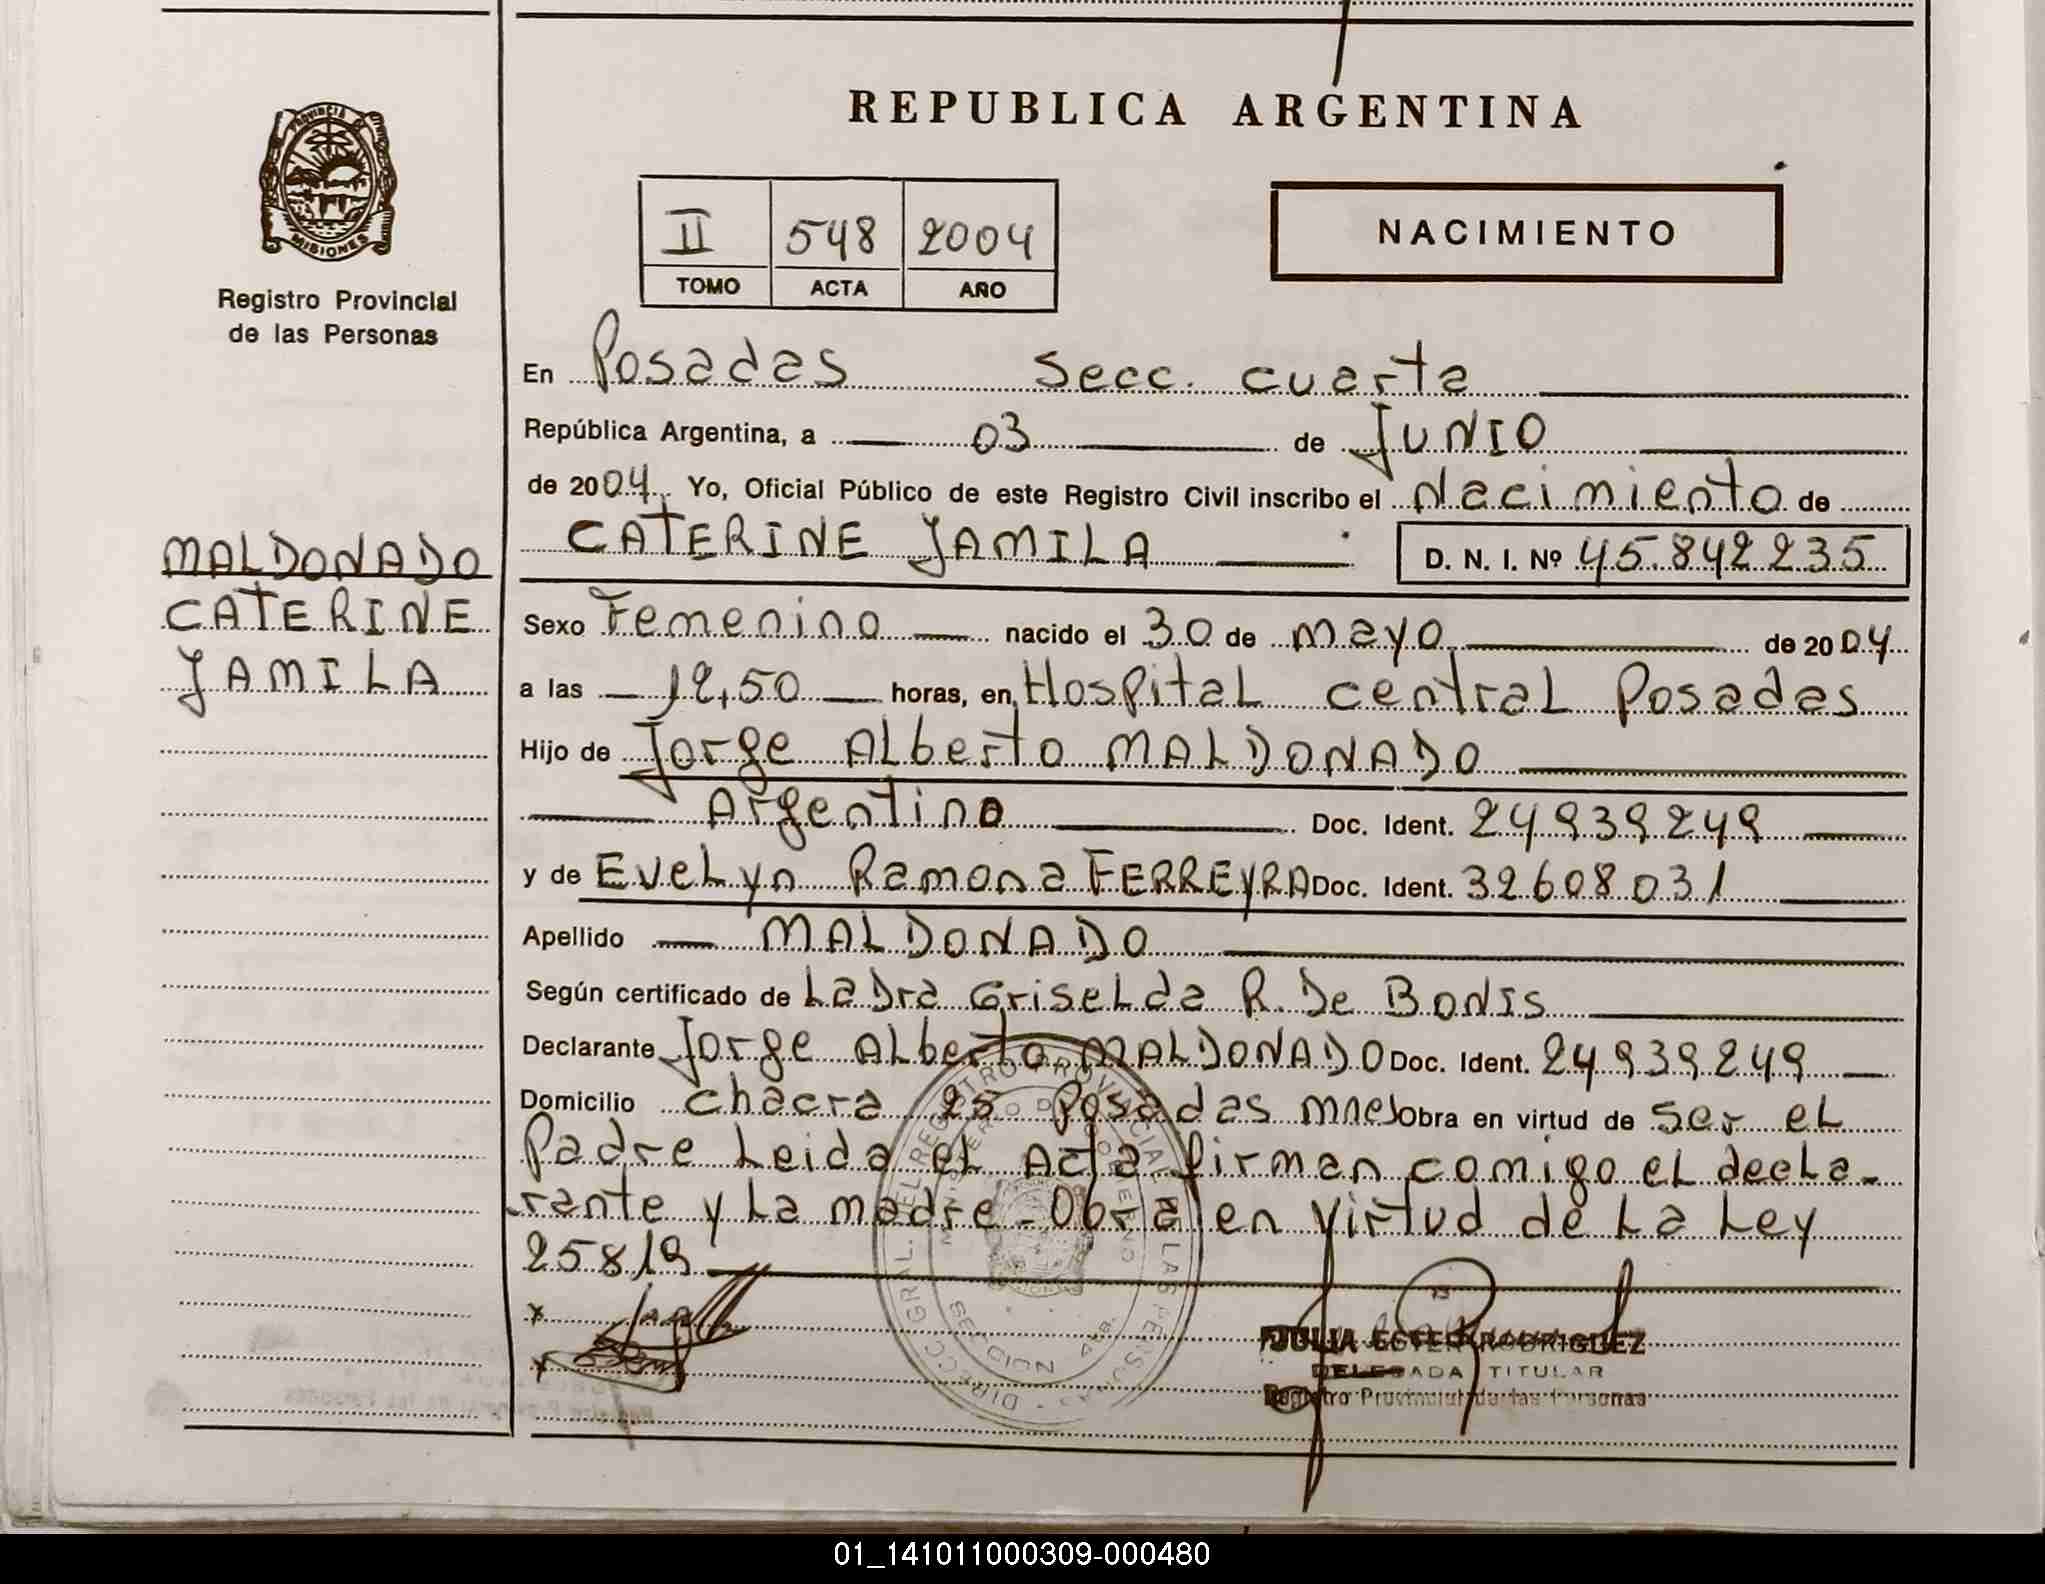 REPUBLICA ARGENTINA
PROVINCIA DE
MISIONES
Registro Provincial
de las Personas
II 548 2004
TOMO ACTA AÑO
NACIMIENTO
En Posadas Secc. cuarta
República Argentina, a 03 de JUNIO
de 2004 Yo, Oficial Público de este Registro Civil inscribo el Nacimiento de
CATERINE JAMILA D. N. I. Nº 45.842235
MALDONADO
CATERINE
JAMILA
Sexo Femenino nacido el 30 de mayo de 2004
a las 12,50 horas, en Hospital central Posadas
Hijo de Jorge Alberto MALDONADO
Argentino Doc. Ident. 24939249
y de Evelyn Ramona FERREYRA Doc. Ident. 32608031
Apellido MALDONADO
Según certificado de La Dra Griselda R. De Bonis
Declarante Jorge Alberto MALDONADO Doc. Ident. 24939249
Domicilio chacra 25 Posadas Mnes Obra en virtud de ser el
Padre Leida el Acta firman comigo el decla-
rante y La madre - Obra en virtud de La Ley
25819
x
x
DIRECC. GRAL. DEL REGISTRO PROVINCIAL DE LAS PERSONAS
MINISTERIO DE GOBIERNO
SECCION 4ta.
JULIA ESTER RODRIGUEZ
DELEGADA TITULAR
Registro Provincial de las Personas
01_141011000309-000480